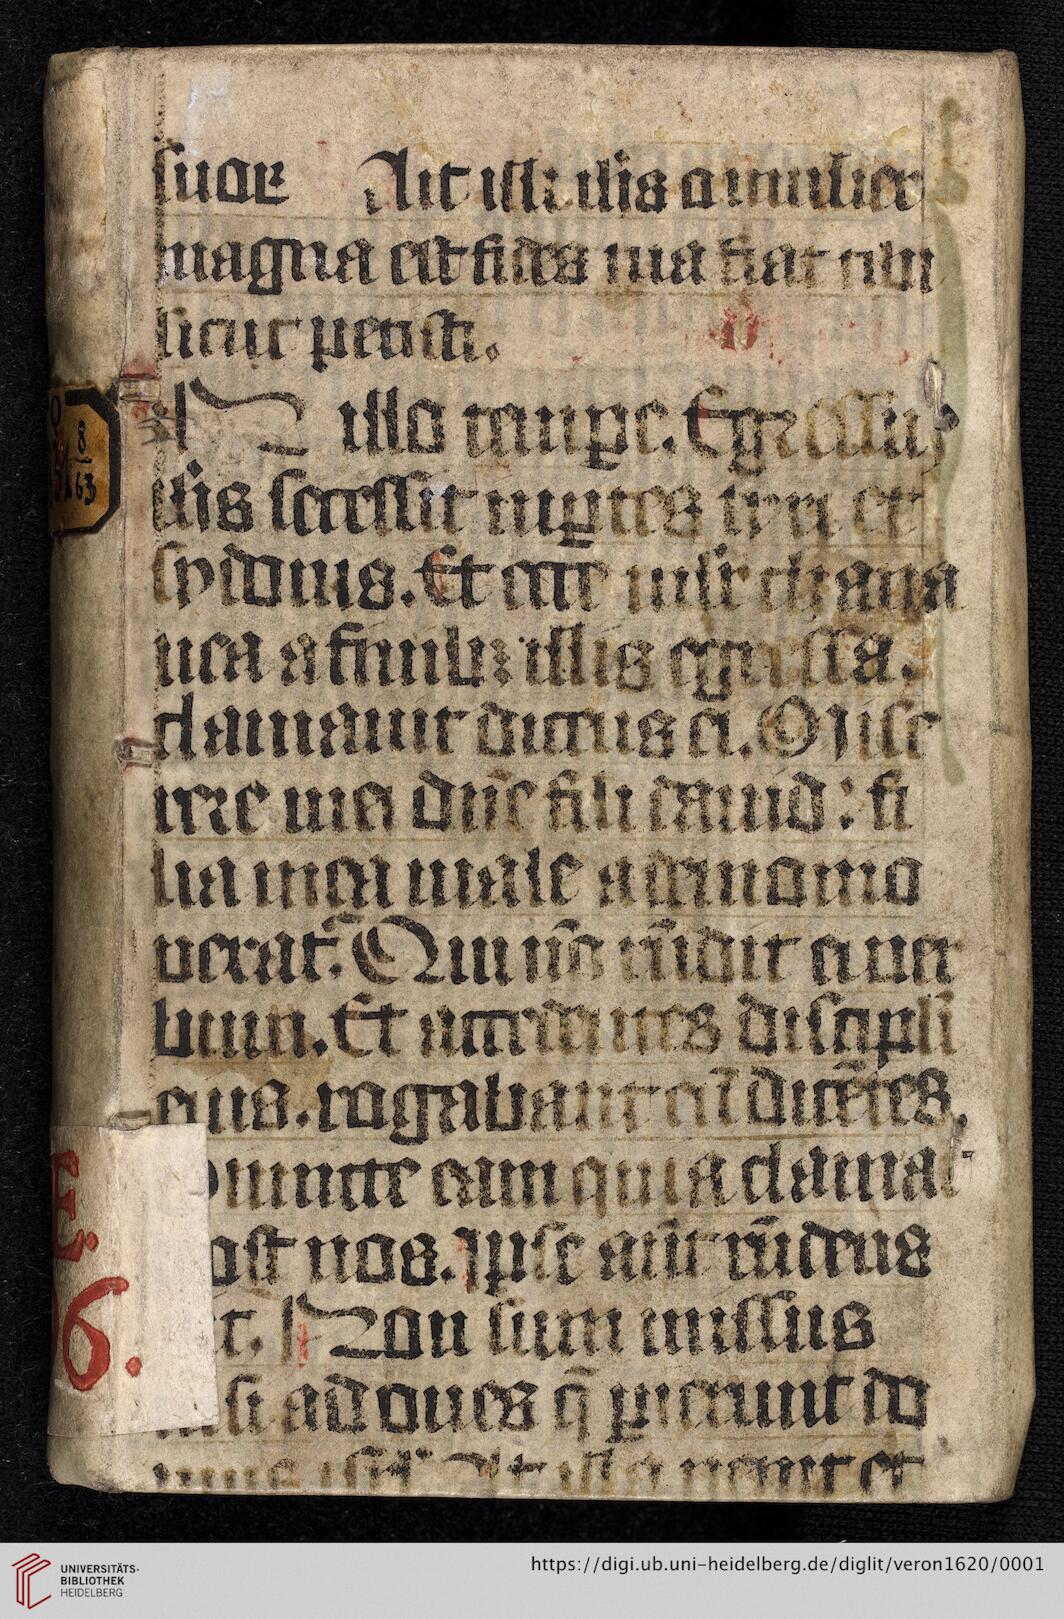 suor Ait illi ihs o mulier
magna est fides tua fiat tibi
sicut petisti.
IN illo tempe. Egressus
ihs secessit in ptes tyri et
sydonis. Et ecce mulier chana
nea a finibꝫ illis egressa.
clamauit dicens ei. Mise
rere mei dñe fili dauid: fi
lia mea male a demonio
uexat᷑. Qui nō rñdit ei uer
bum. Et accedentes discipli
eius. rogabant eū dicētes.
Dimitte eam quia clamat
post nos. Ipse aūt rñdens
ait. Non sum missus
nisi ad oues q̄ perierunt do
mus isrl. At illa uenit et
8
63
E.
6.
UNIVERSITÄTS-
BIBLIOTHEK
HEIDELBERG
https://digi.ub.uni-heidelberg.de/diglit/veron1620/0001